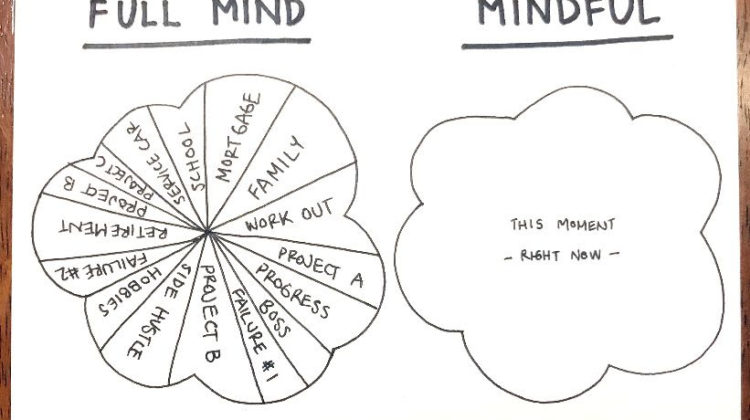 FULL MIND
MINDFUL
MORTGAGE
FAMILY
WORK OUT
PROJECT A
PROGRESS
BOSS
FAILURE #1
PROJECT B
SIDE HUSTLE
HOBBIES
FAILURE #2
RETIREMENT
PROJECT B
PROJECT C
SERVICE CAR
SCHOOL
THIS MOMENT
- RIGHT NOW -